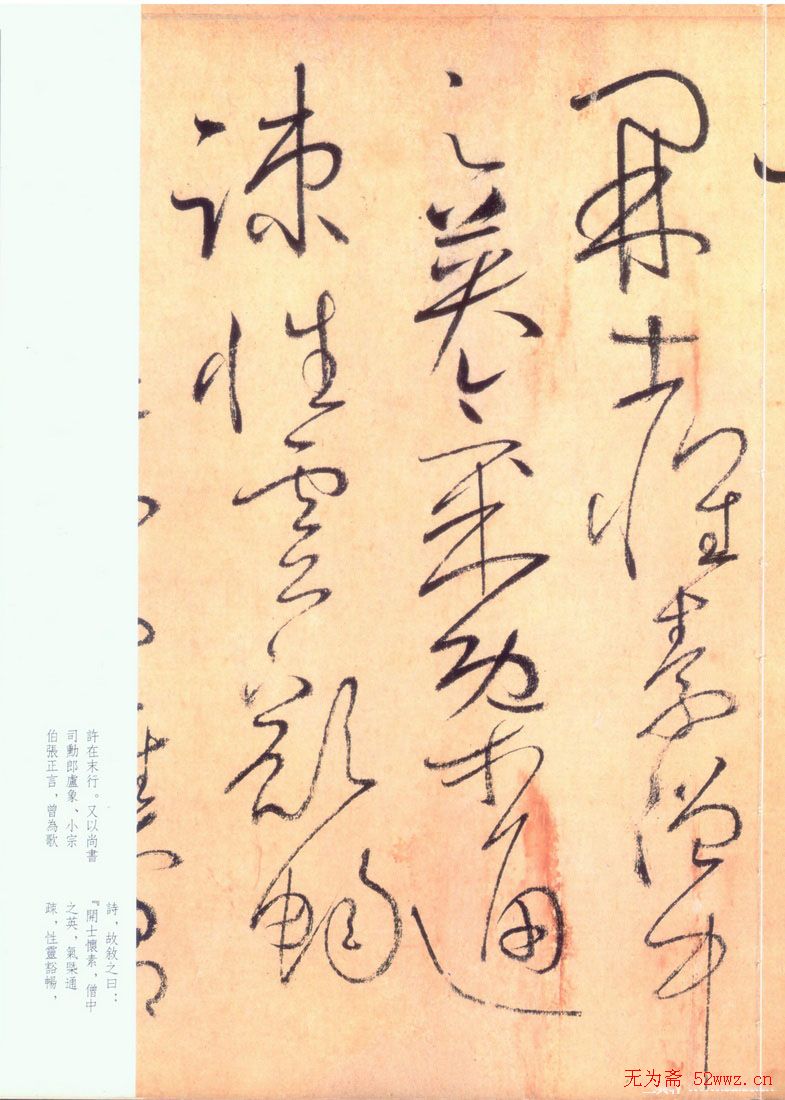 開士懷素僧中
之英氣槩通
疎性靈豁暢
許在末行。又以尚書
司勳郎盧象、小宗
伯張正言,曾為歌
詩,故敘之曰:
『開士懷素,僧中
之英,氣槩通
疎,性靈豁暢,
无为斋 52wwz.cn